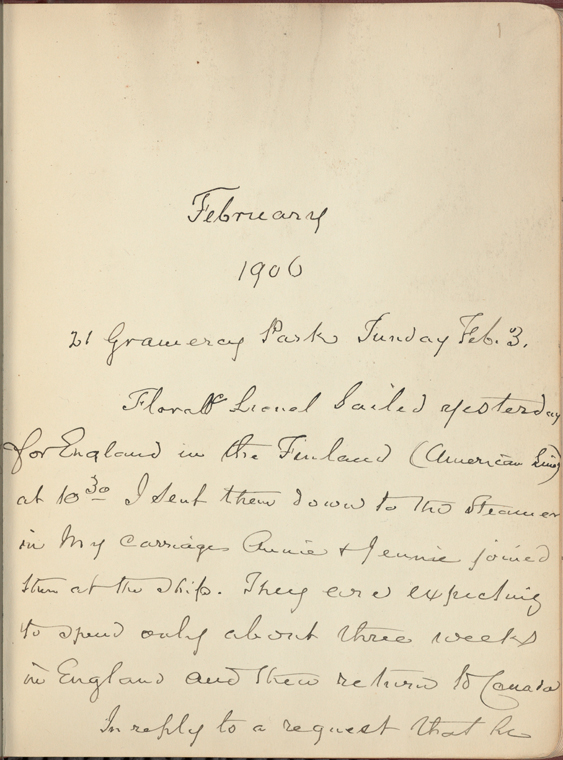 1
February
1906
21 Gramercy Park Sunday Feb. 3.
Flora & Lionel Sailed yesterday
for England in the Finland (American Line)
at 10 30 I sent them down to the steamer
in my carriage Annie & Jennie joined
them at the ship. They are expecting
to spend only about three weeks
in England and then return to Canada
In reply to a request that he